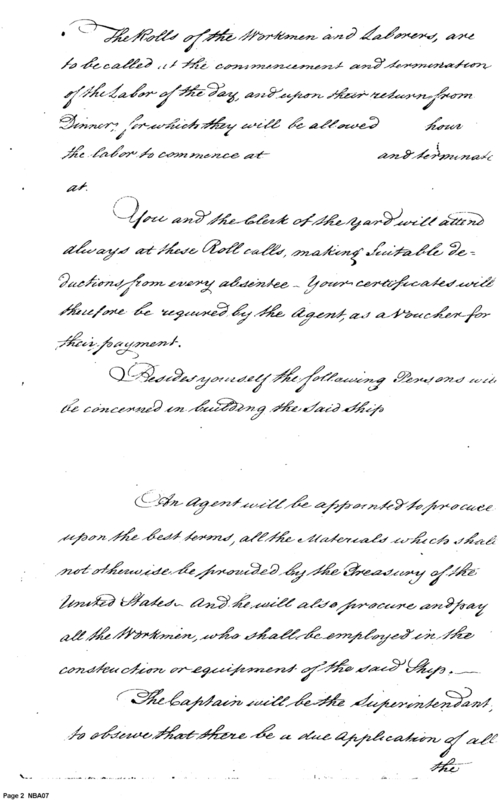 The Rolls of the Workmen and Laborers, are
to be called at the commencement and termination
of the Labor of the day, and upon their return from
Dinner, for which they will be allowed hour
the labor to commence at and terminate
at.
You and the Clerk of the Yard will attend
always at these Roll calls, making Suitable de=
ductions from every absentee - Your certificates will
therefore be required by the Agent, as a Voucher for
their payment.
Besides yourself the following Persons will
be concerned in building the said Ship
An Agent will be appointed to procure
upon the best terms, all the Materials which shall
not otherwise be provided by the Treasury of the
United States. And he will also procure and pay
all the Workmen, who shall be employed in the
construction or equipment of the said Ship. —
The Captain will be the Superintendant,
to observe that there be a due application of all
the
Page 2 NBA07